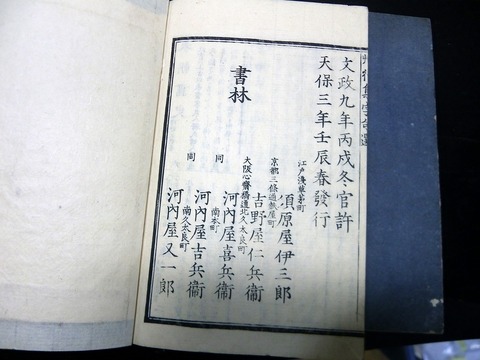 文政九年丙戌冬官許
天保三年壬辰春發行
書林
江戸浅草茅町
須原屋伊三郎
京都三條通麩屋町
吉野屋仁兵衞
大阪心齋橋通北久太良町
河內屋喜兵衞
同 南本町
河內屋吉兵衞
同 南久太良町
河內屋又一郎